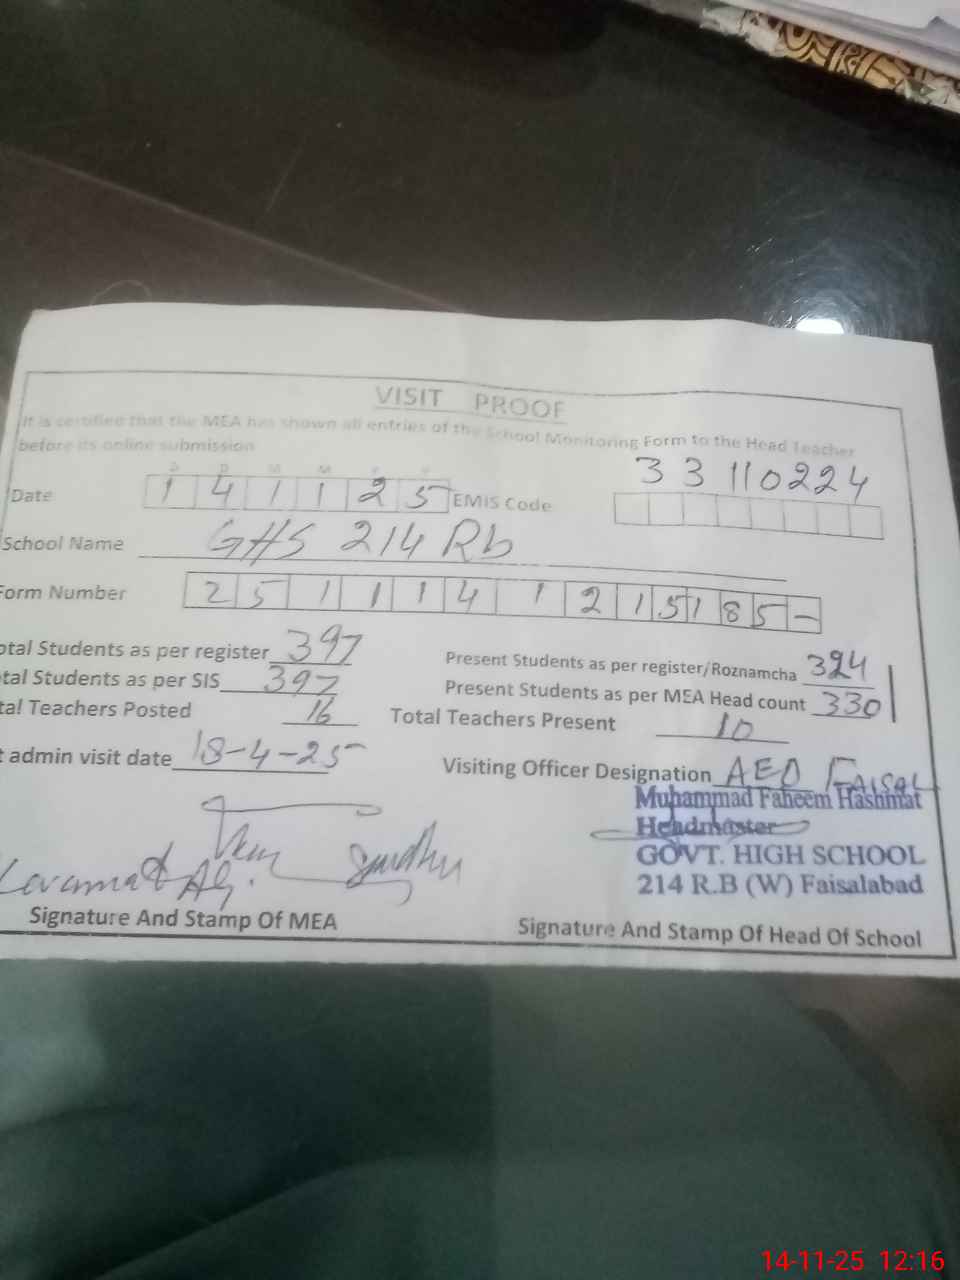 VISIT PROOF
It is certified that the MEA has shown all entries of the School Monitoring Form to the Head Teacher
before its online submission
D D M M Y Y
Date 1 4 1 1 2 5 EMIS Code 33110224
School Name GHS 214 Rb
Form Number 2 5 1 1 1 4 1 2 1 5 1 8 5 -
otal Students as per register 397 Present Students as per register/Roznamcha 324
tal Students as per SIS 397 Present Students as per MEA Head count 330
tal Teachers Posted 16 Total Teachers Present 10
t admin visit date 18-4-25 Visiting Officer Designation AEO FAISAL
Muhammad Faheem Hashmat
Headmaster
GOVT. HIGH SCHOOL
214 R.B (W) Faisalabad
Signature And Stamp Of MEA Signature And Stamp Of Head Of School
14-11-25 12:16